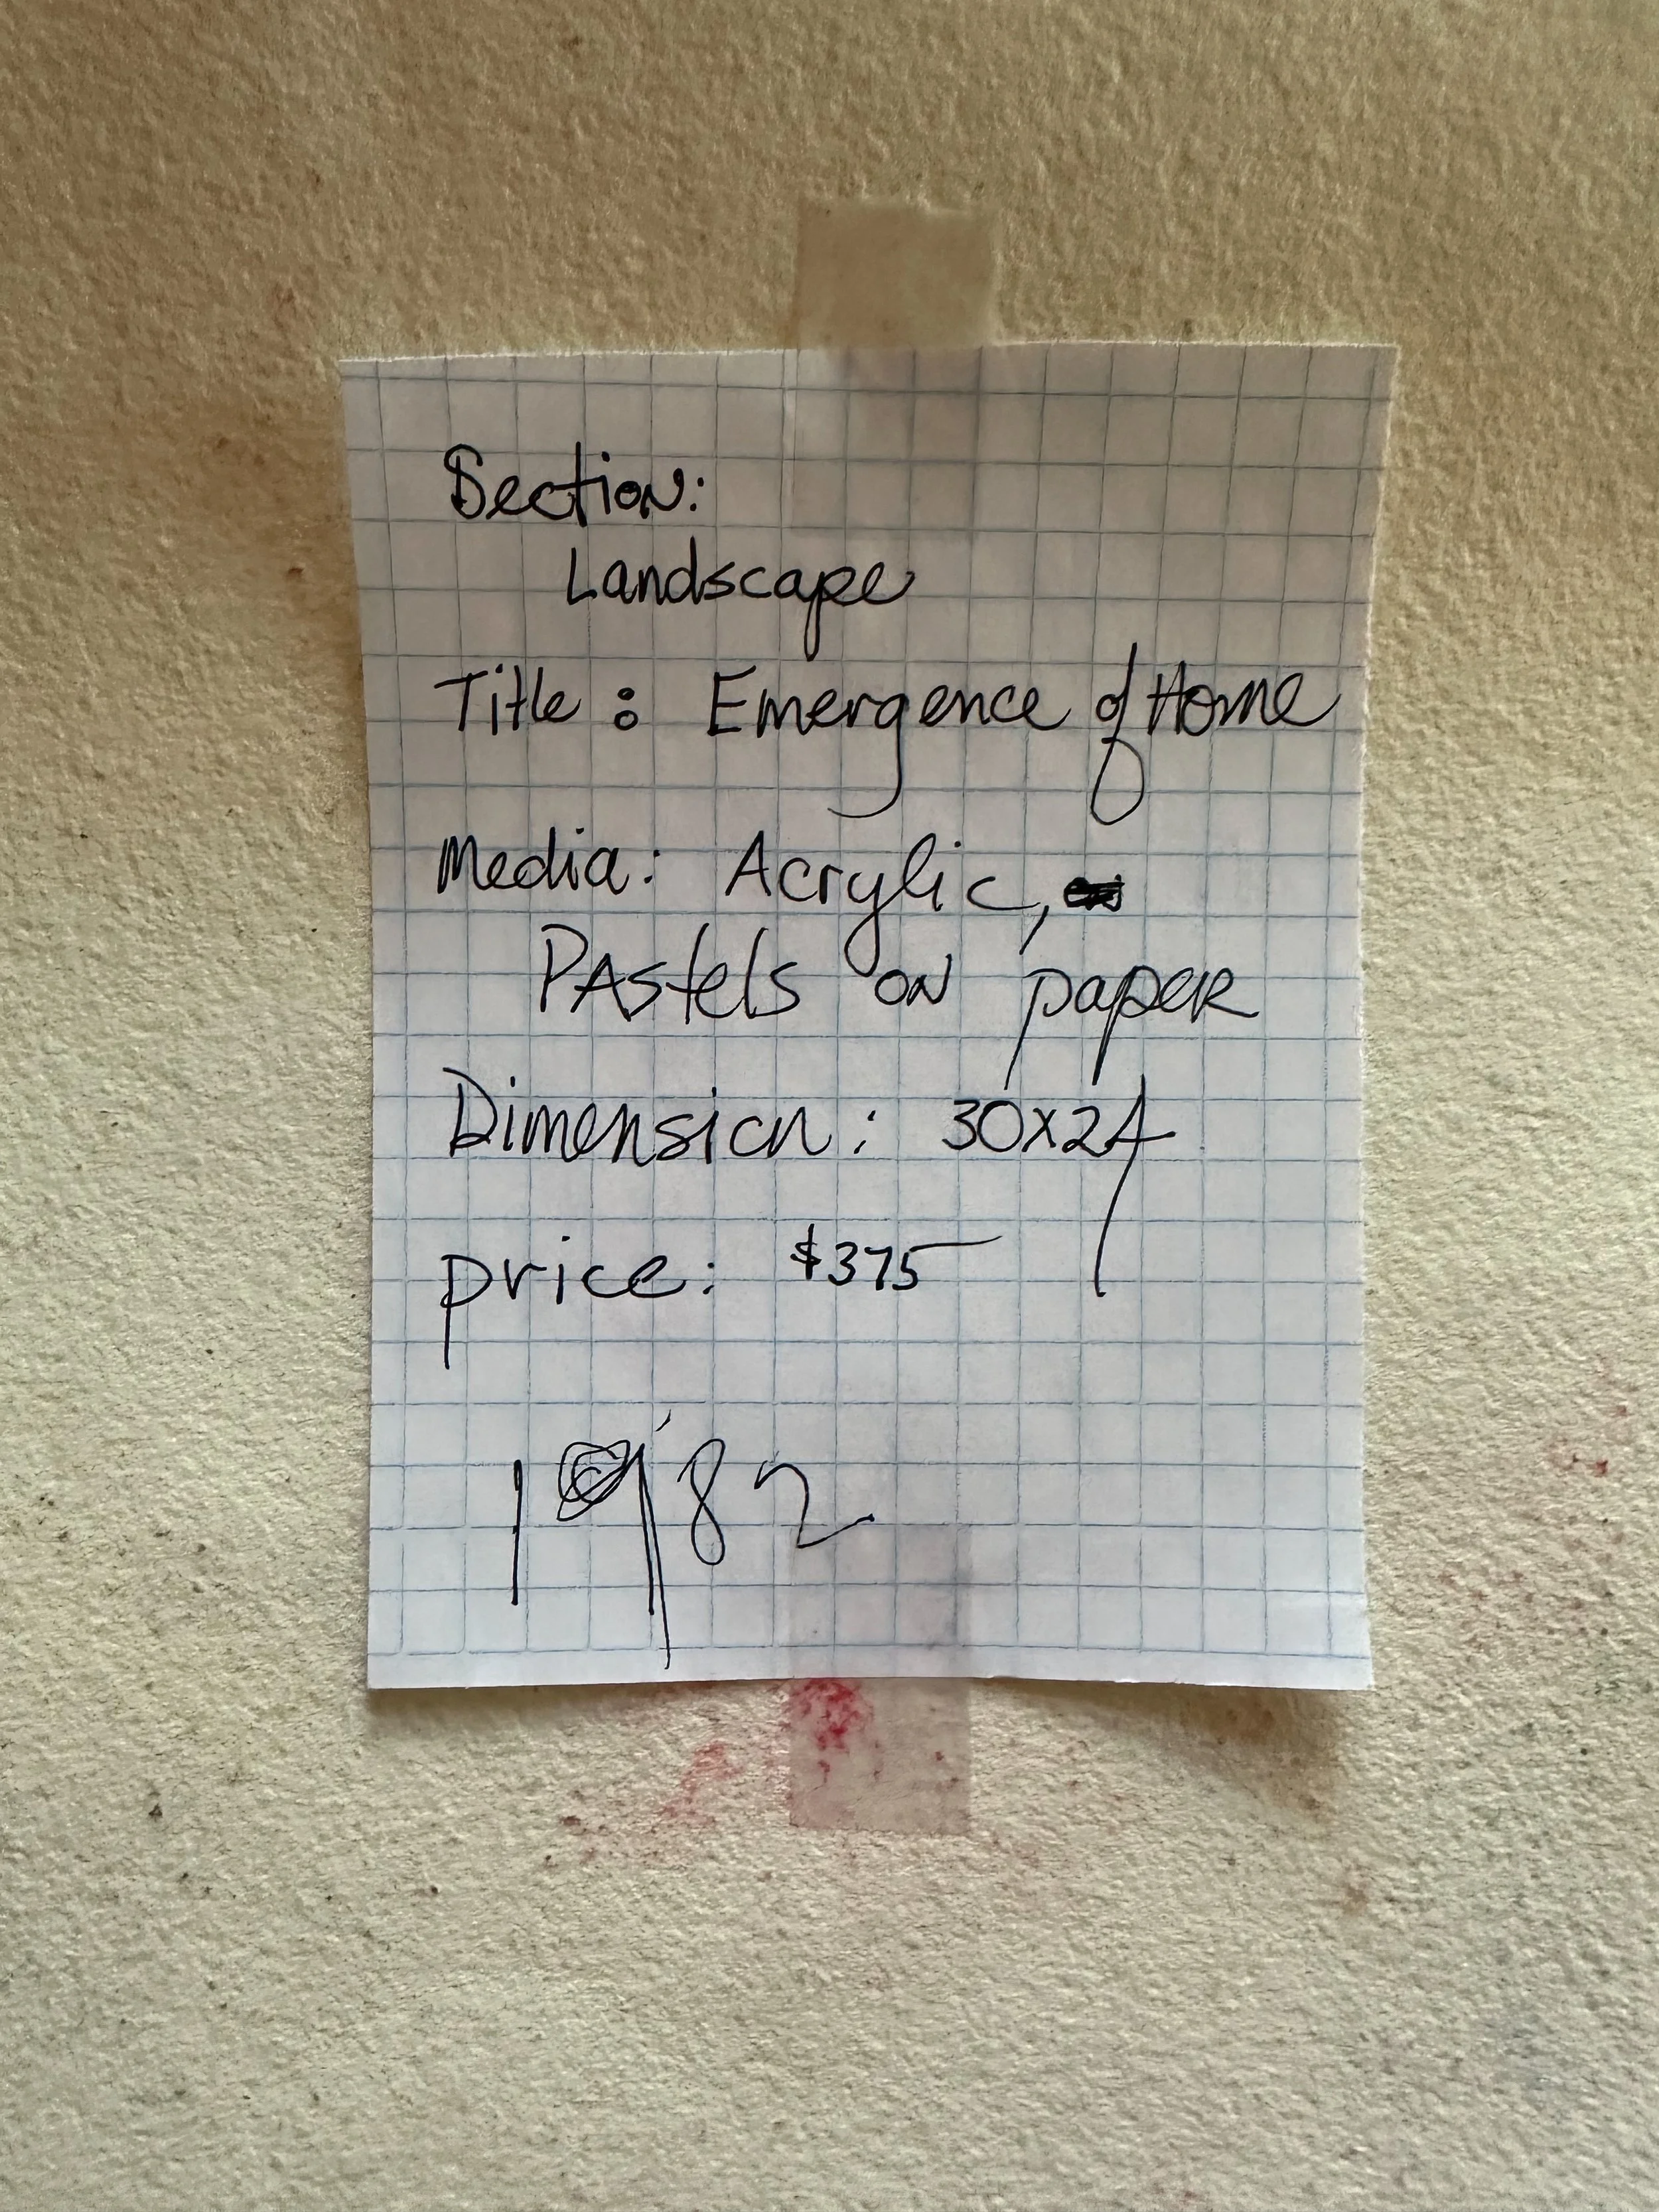 Section:
Landscape
Title: Emergence of Home
Media: Acrylic,
PAstels on paper
Dimension: 30x24
price: $375
1982